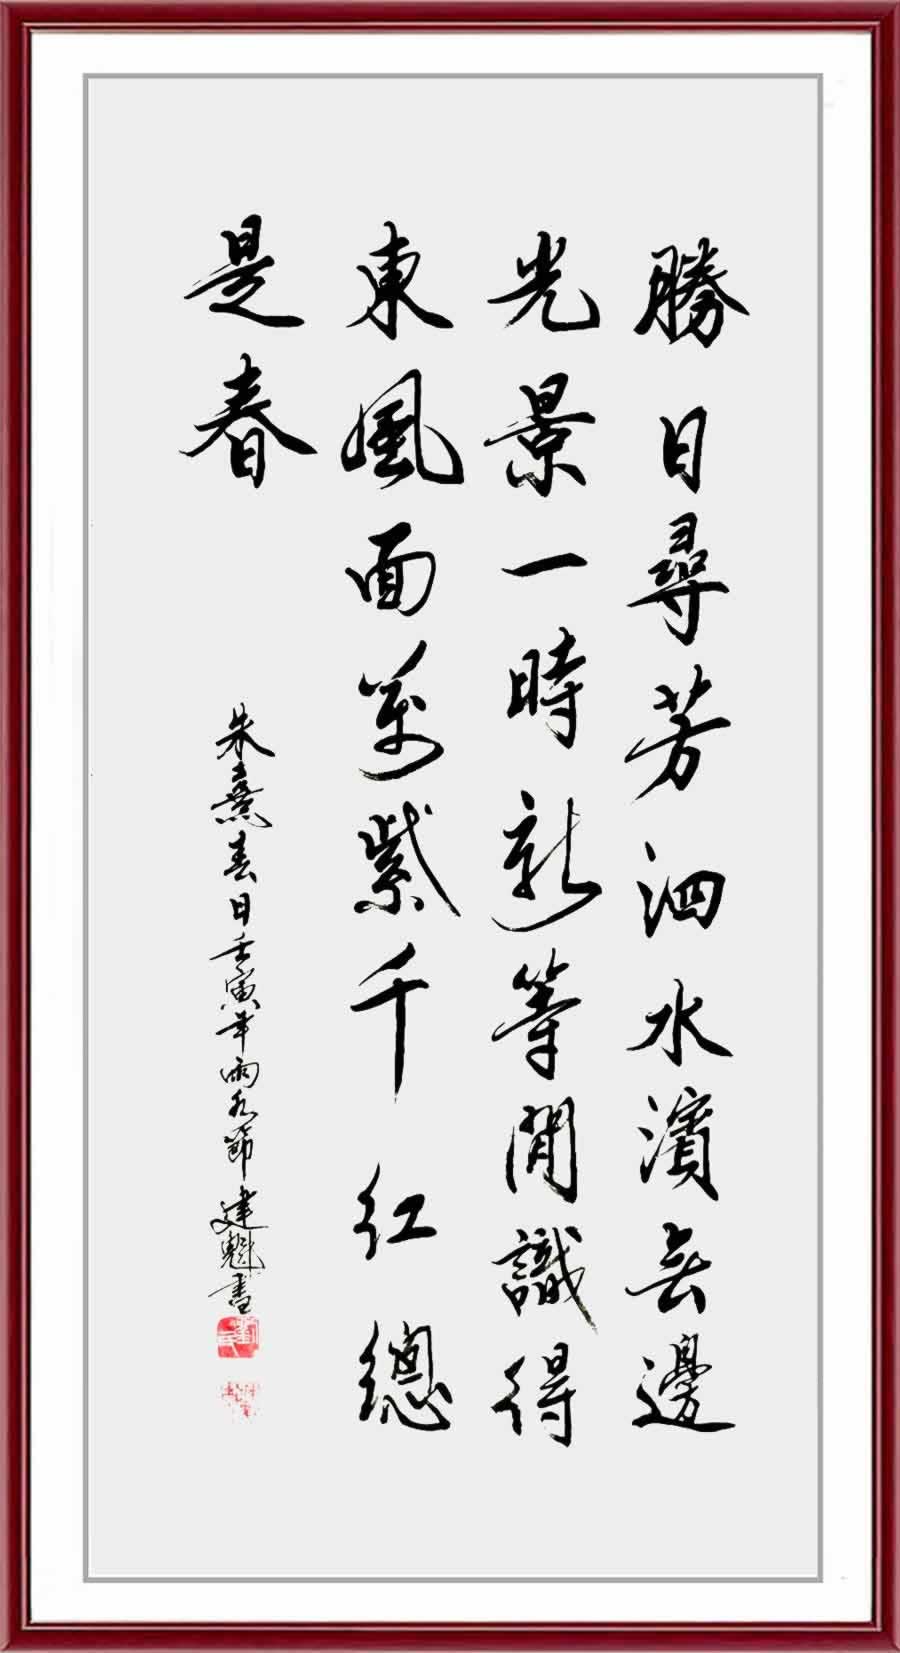 勝日尋芳泗水濱無邊
光景一時新等閒識得
東風面萬紫千紅總
是春
朱熹春日壬寅年雨水節建魁書